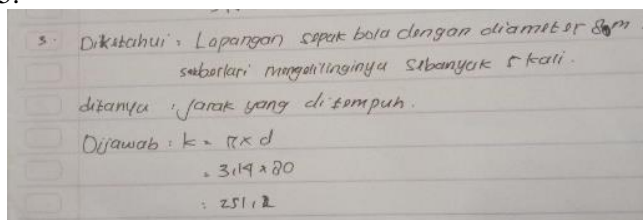 3.
5. Diketahui : Lapangan sepak bola dengan diameter 80m.
berlari mengelilinginya sebanyak 5 kali.
ditanya : Jarak yang ditempuh.
Dijawab : k = π x d
= 3,14 x 80
= 251,2